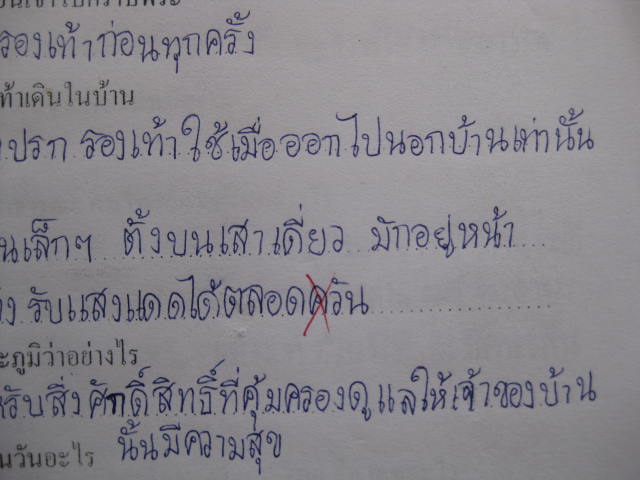 รองเท้าก่อนทุกครั้ง
ท้าเดินในบ้าน
ปรก รองเท้าใช้เมื่อออกไปนอกบ้านเท่านั้น
นเล็กๆ ตั้งบนเสาเดี่ยว มักอยู่หน้า
รับแสงแดดได้ตลอดวัน
ะภูมิว่าอย่างไร
รับสิ่งศักดิ์สิทธิ์ที่คุ้มครองดูแลให้เจ้าของบ้าน
นวันอะไร นั้นมีความสุข